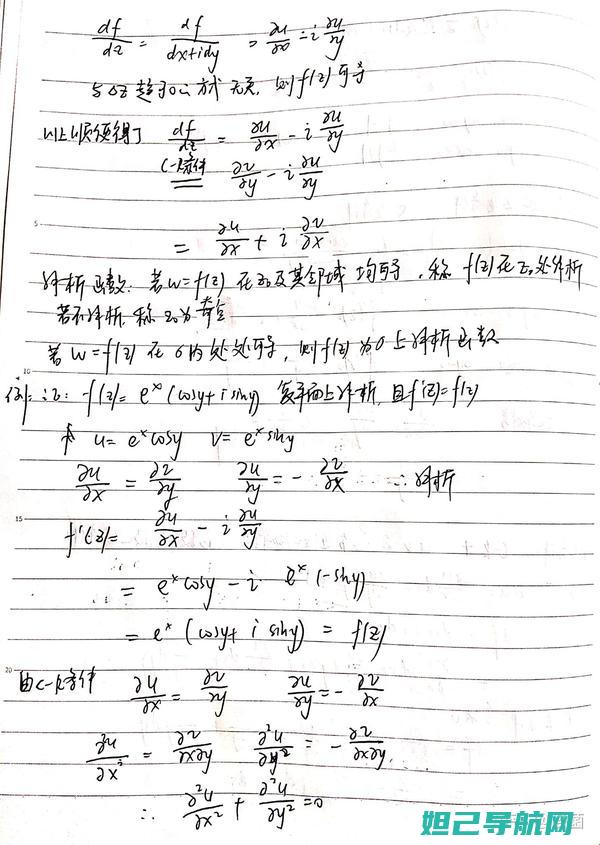 df/dz = df/(dx+idy) = ∂u/∂x - i ∂u/∂y
与Δz趋于0的方式无关, 则f(z)可导
以上顺便得了 df/dz = ∂u/∂x - i ∂u/∂y
C-R条件 ∂v/∂y - i ∂u/∂y
5
= ∂u/∂x + i ∂v/∂x
解析函数: 若w=f(z) 在z₀及其邻域 均可导, 称 f(z)在z₀处解析
若不解析, 称z₀为奇点
若 w=f(z) 在σ内处处可导, 则f(z)为σ上解析函数
10
例: 证: f(z)= eˣ(cosy+isiny) 复平面上解析, 且f'(z)=f(z)
u= eˣcosy v= eˣsiny
∂u/∂x = ∂v/∂y ∂u/∂y = - ∂v/∂x ∴解析
15
f'(z)= ∂u/∂x - i ∂u/∂y
= eˣcosy - i eˣ(-siny)
= eˣ(cosy+ i siny) = f(z)
20
由C-R条件 ∂u/∂x = ∂v/∂y ∂u/∂y = - ∂v/∂x
∂²u/∂x² = ∂v/∂x∂y ∂²u/∂y² = - ∂v/∂x∂y
∴ ∂²u/∂x² + ∂²u/∂y² =0
妲己导航网